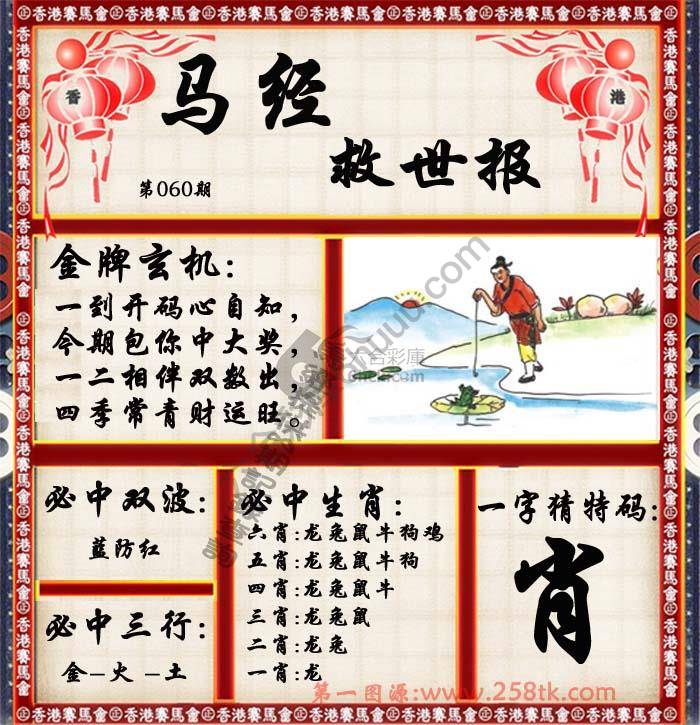 香港賽馬會
香 港
马经
救世报
第060期
金牌玄机:
一到开码心自知,
今期包你中大奖,
一二相伴双数出,
四季常青财运旺。
六合彩庫
必中双波:
蓝防红
必中三行:
金-火-土
必中生肖:
六肖:龙兔鼠牛狗鸡
五肖:龙兔鼠牛狗
四肖:龙兔鼠牛
三肖:龙兔鼠
二肖:龙兔
一肖:龙
一字猜特码:
肖
第一图源:www.258tk.com